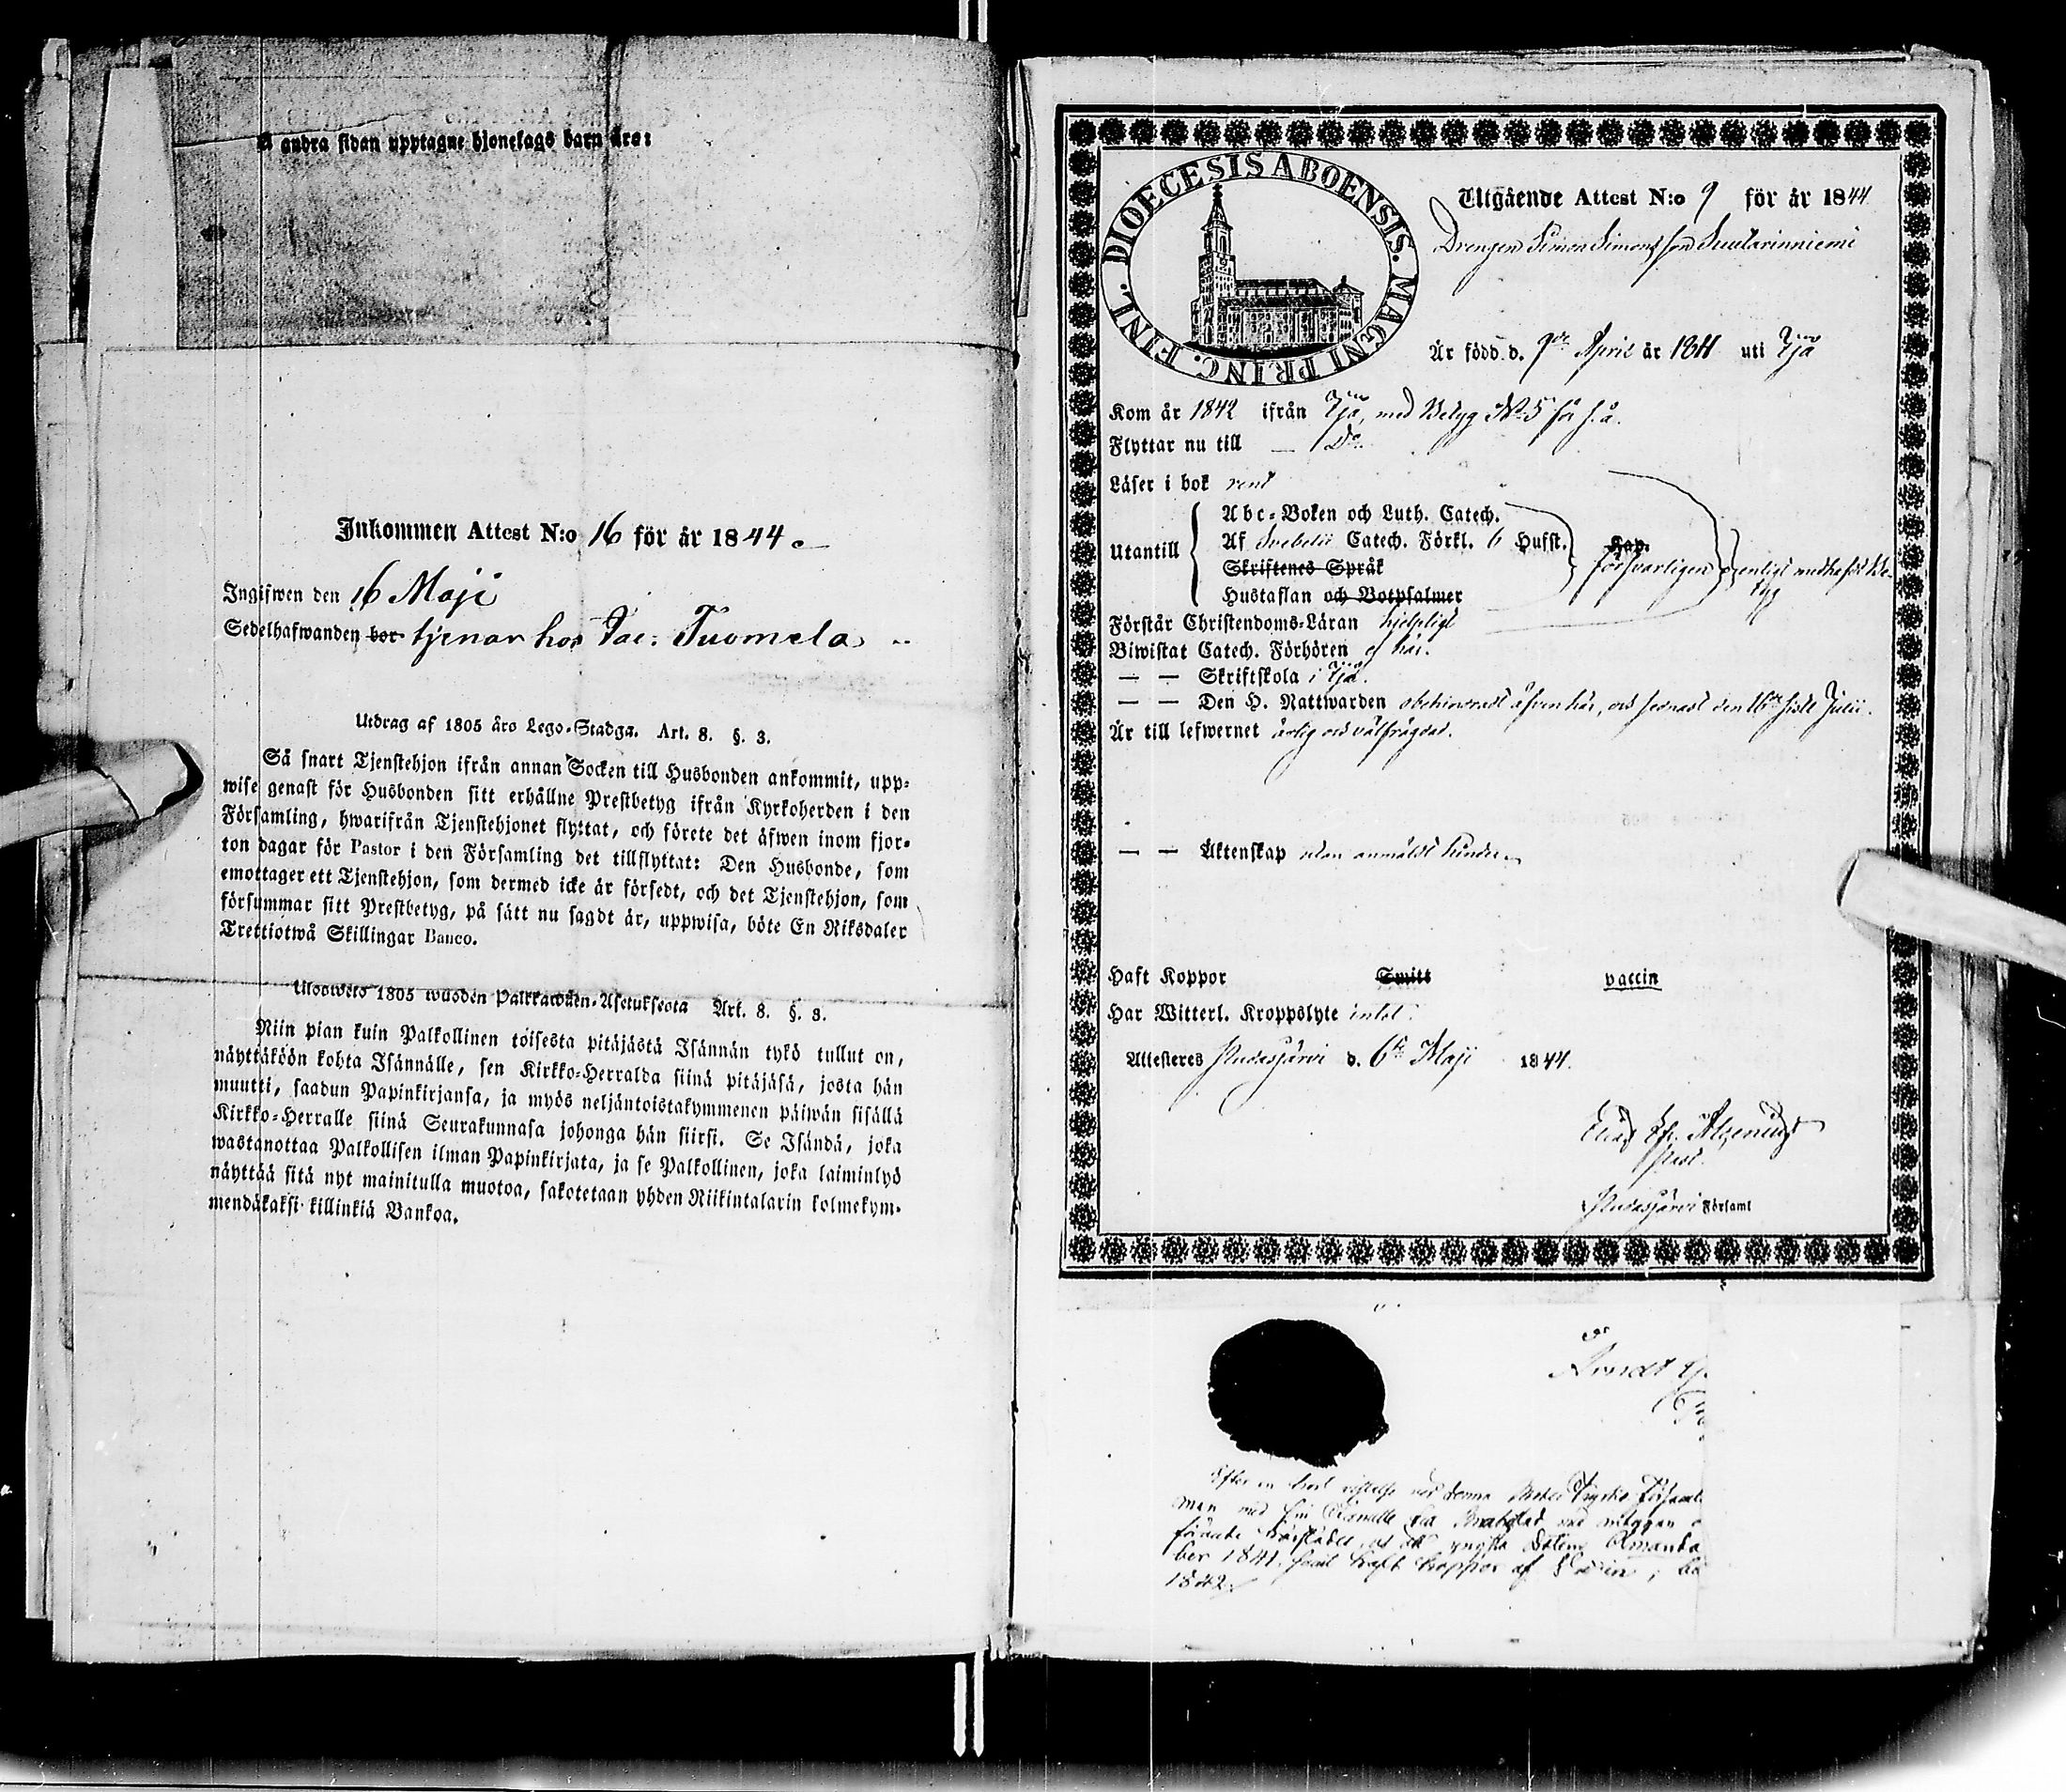 Å andra sidan upptagne hjonelags barn äro:
Inkommen Attest N:o 16 för år 1844.
Ingifwen den 16 Maji
Sedelhafwanden bor tjenar hos Jac: Tuomela
Utdrag af 1805 års Lego-Stadga. Art. 8. §. 3.
Så snart Tjenstehjon ifrån annan Socken till Husbonden ankommit, upp-
wise genast för Husbonden sitt erhållne Prestbetyg ifrån Kyrkoherden i den
Församling, hwarifrån Tjenstehjonet flyttat, och förete det äfwen inom fjor-
ton dagar för Pastor i den Församling det tillflyttat: Den Husbonde, som
emottager ett Tjenstehjon, som dermed icke är försedt, och det Tjenstehjon, som
försummar sitt Prestbetyg, på sätt nu sagdt är, uppwisa, böte En Riksdaler
Trettiotwå Skillingar Banco.
Ulosweto 1805 wuoden Palkkawäen-Asetuksesta Art. 8. §. 3.
Niin pian kuin Palkollinen toisesta pitäjästä Isännän tykö tullut on,
näyttäköön kohta Isännälle, sen Kirkko-Herralda siinä pitäjäsä, josta hän
muutti, saadun Papinkirjansa, ja myös neljäntoistakymmenen päiwän sisällä
Kirkko-Herralle siinä Seurakunnasa johonga hän siirsi. Se Isändä, joka
wastanottaa Palkollisen ilman Papinkirjata, ja se Palkollinen, joka laiminlyö
näyttää sitä nyt mainitulla muotoa, sakotetaan yhden Riikintalarin kolmekym-
mendäkaksi killinkiä Bankoa.
DIOECESIS ABOENSIS. MAGNI PRINC. FINL.
Utgående Attest N:o 9 för år 1844
Drengen Simon Simonsson Suutarinniemi
Är född d. 9de April år 1811 uti Ijå
Kom år 1842 ifrån Ijå, med Betyg No 5 för s.å.
Flyttar nu till — Do
Läser i bok rent
Utantill
Abc-Boken och Luth. Catech.
Af Svebelii Catech. Förkl. 6 Hufst.
Skriftenes Språk
Hustaflan och Botpsalmer
Kap.
försvarligen enligt medhafdt Be-
tyg
Förstår Christendoms-Läran hjelpligt
Biwistat Catech. Förhören här.
— — Skriftskola i Ijå.
— — Den H. Nattwarden obehindradt äfven här, och senast den 16de sistl. Julii.
Är till lefwernet ärlig och välfrägdad.
— — Äktenskap utan anmäldt hinder.
Haft Koppor Smitt vaccin
Har Witterl. Kroppslyte intet.
Attesteres Pudasjärvi d. 6te Maji 1844.
Elias Ef. Alcenius
Past.
Pudasjärvi Församl
Efter en kort vistelse
1842.